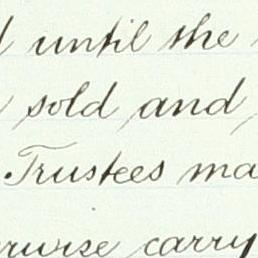 until the
sold and
Trustees ma
rwise carry